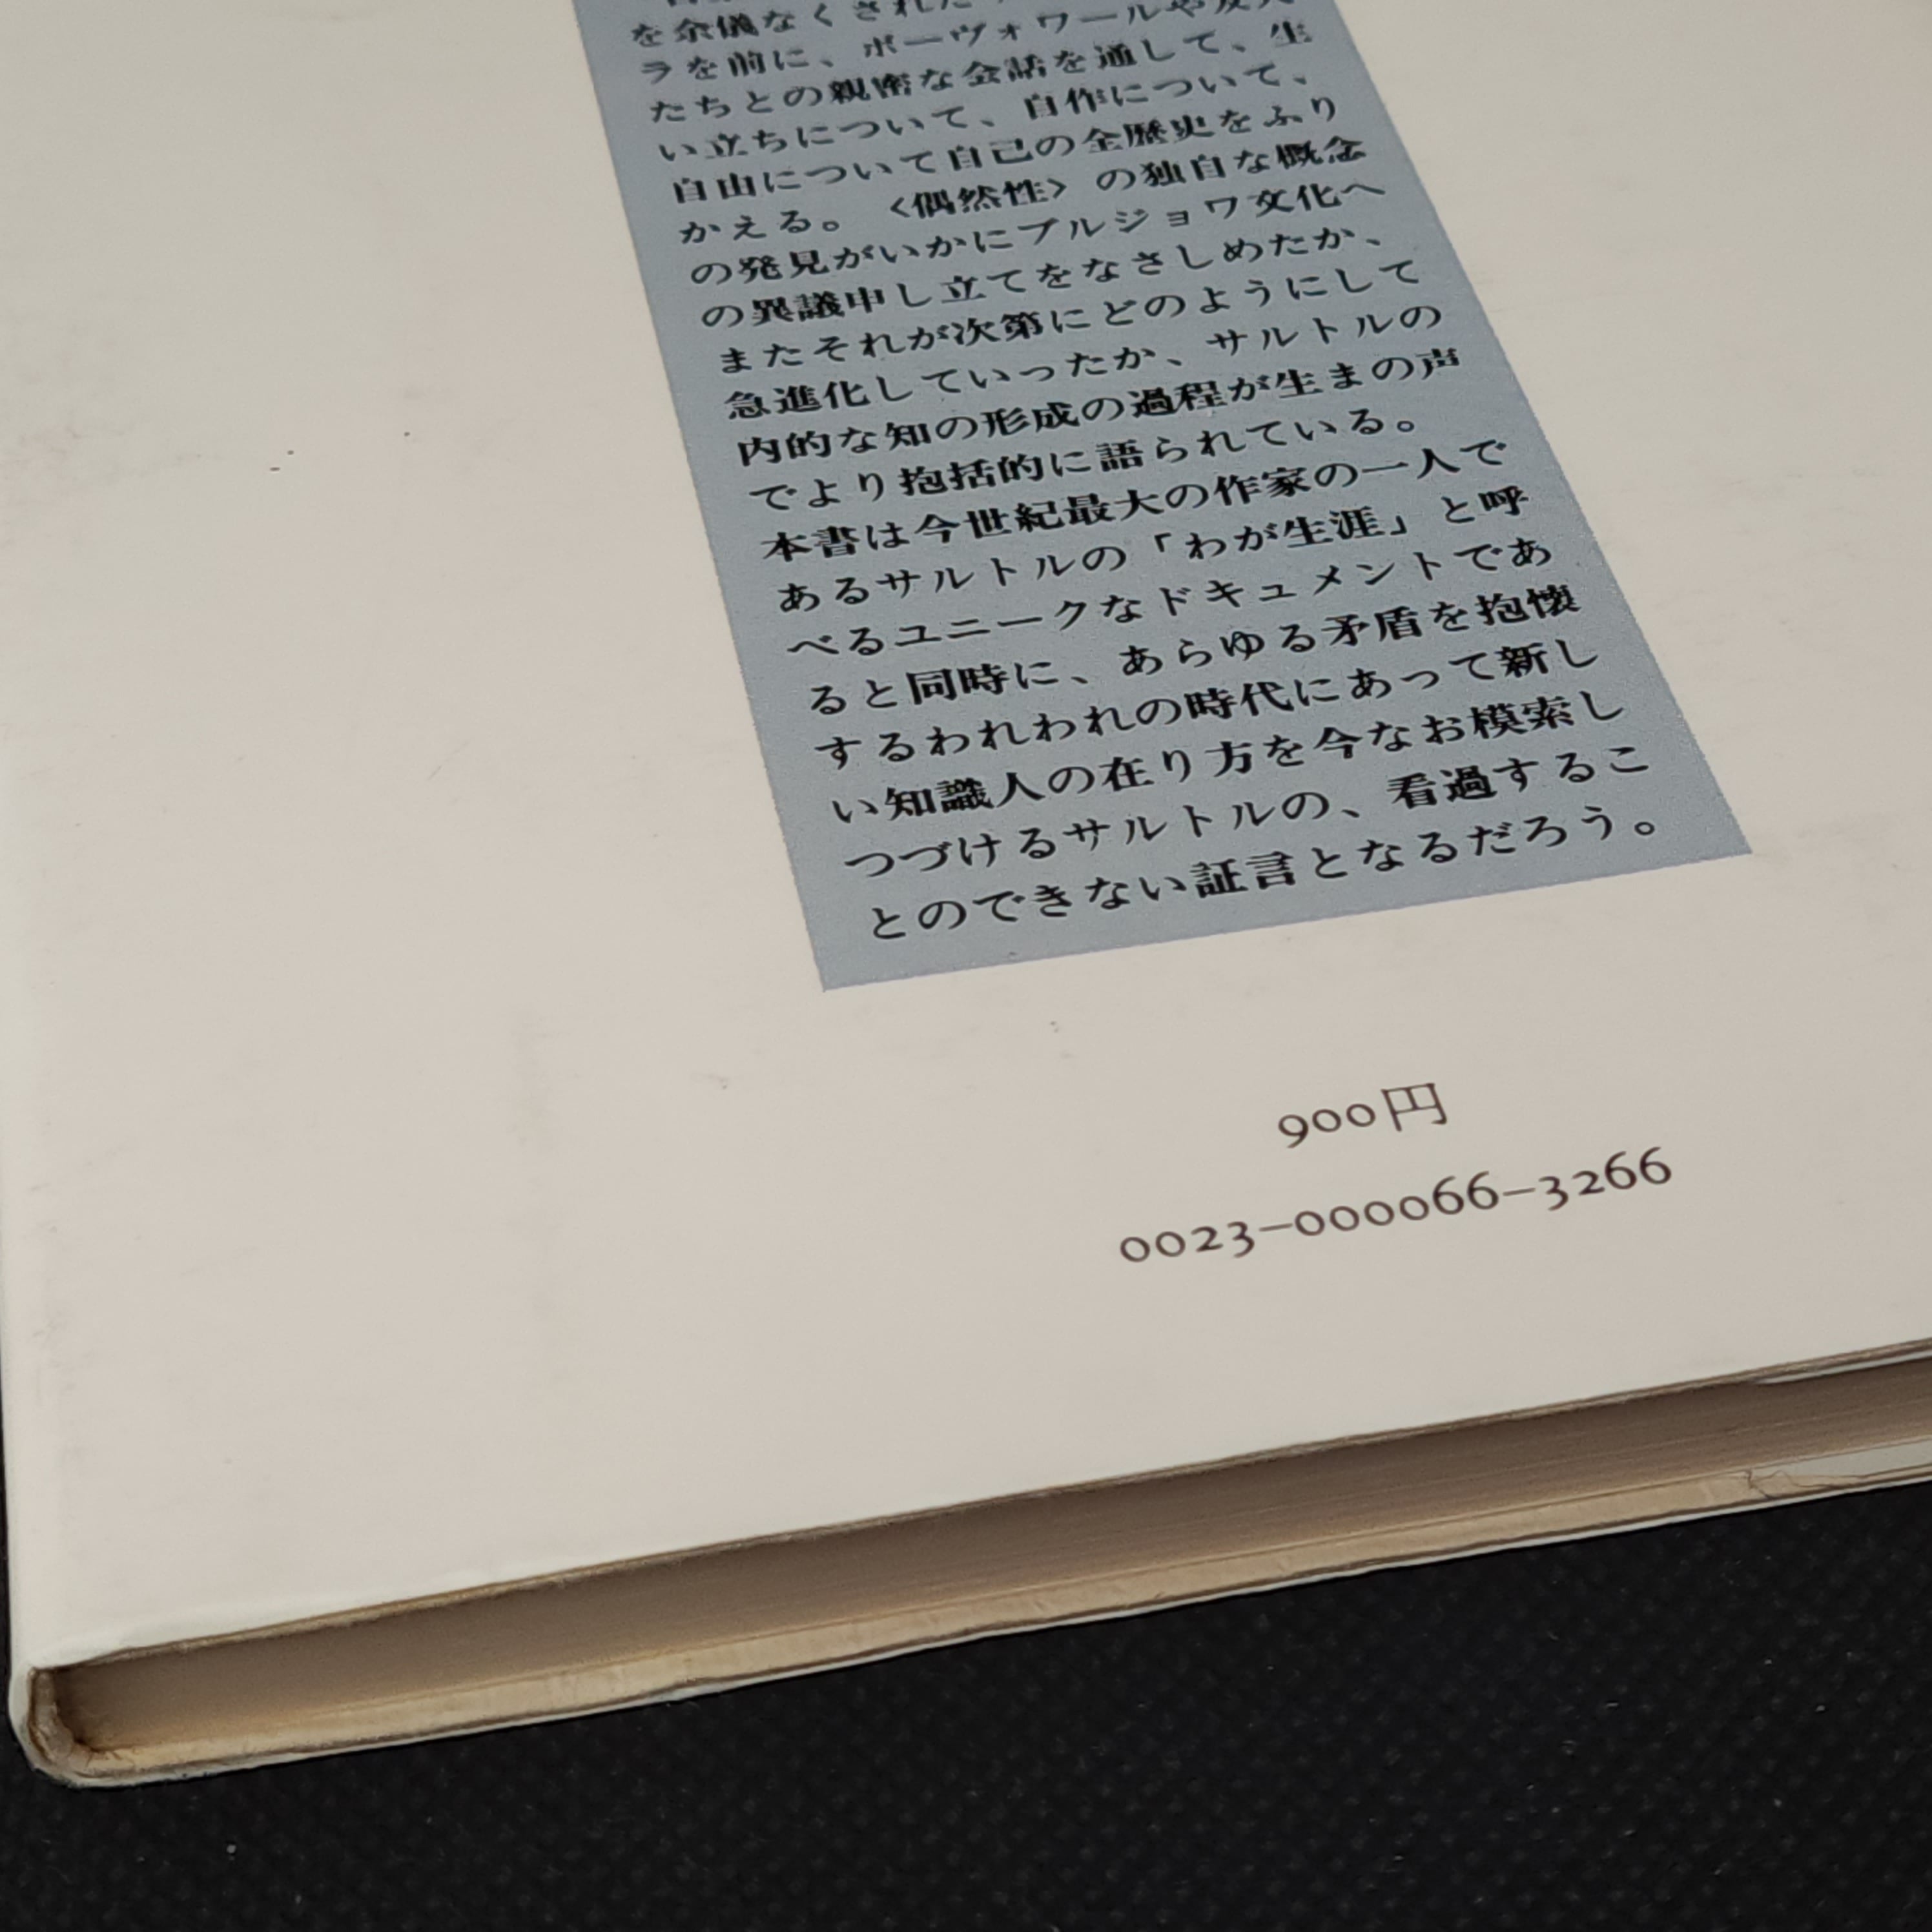 を余儀なくされた
ラを前に、ボーヴォワールや友人
たちとの親密な会話を通して、生
い立ちについて、自作について、
自由について自己の全歴史をふり
かえる。〈偶然性〉の独自な概念
の発見がいかにブルジョワ文化へ
の異議申し立てをなさしめたか、
またそれが次第にどのようにして
急進化していったか、サルトルの
内的な知の形成の過程が生まの声
でより抱括的に語られている。
本書は今世紀最大の作家の一人で
あるサルトルの「わが生涯」と呼
べるユニークなドキュメントであ
ると同時に、あらゆる矛盾を抱懐
するわれわれの時代にあって新し
い知識人の在り方を今なお模索し
つづけるサルトルの、看過するこ
とのできない証言となるだろう。
900円
0023-000066-3266